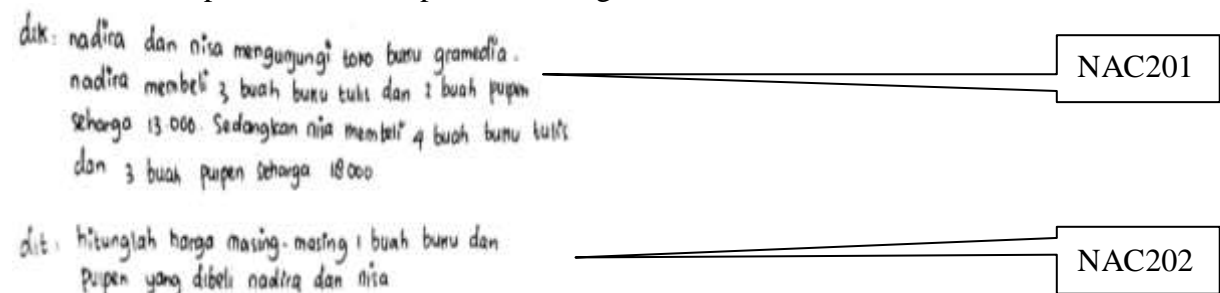 dik: nadira dan nisa mengunjungi toko buku gramedia.
nadira membeli 3 buah buku tulis dan 2 buah pulpen
seharga 13.000. Sedangkan nisa membeli 4 buah buku tulis
dan 3 buah pulpen seharga 18000
dit: hitunglah harga masing-masing 1 buah buku dan
pulpen yang dibeli nadira dan nisa
NAC201
NAC202